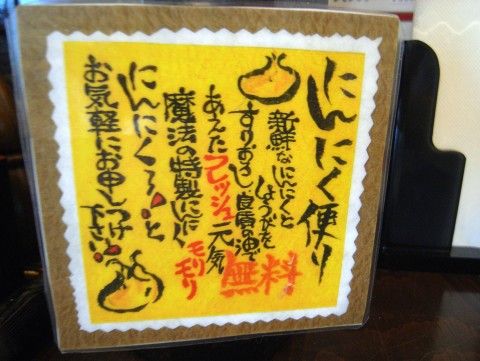 にんにく便り
新鮮なにんにくと
しょうがを
すりおろし良質の油で
あえたフレッシュ元気
モリモリ
無料
魔法の特製にんにく
にんにく〜!と
お気軽にお申しつけ
下さい!